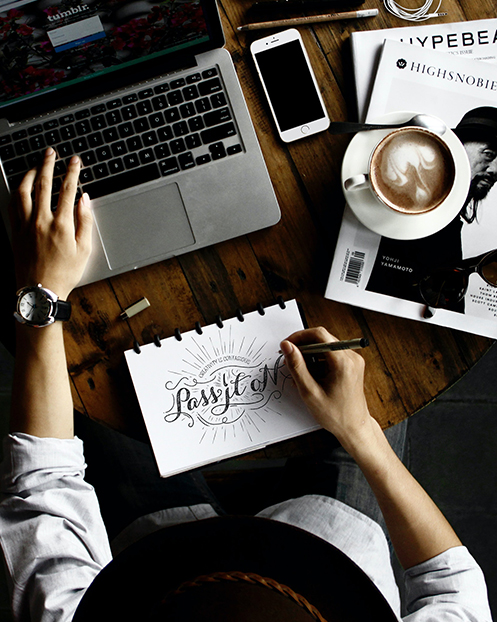 tumblr.
HYPEBEA
HIGHSNOBIE
YOHJI
YAMAMOTO
CREATIVITY IS CONTAGIOUS
Pass it on